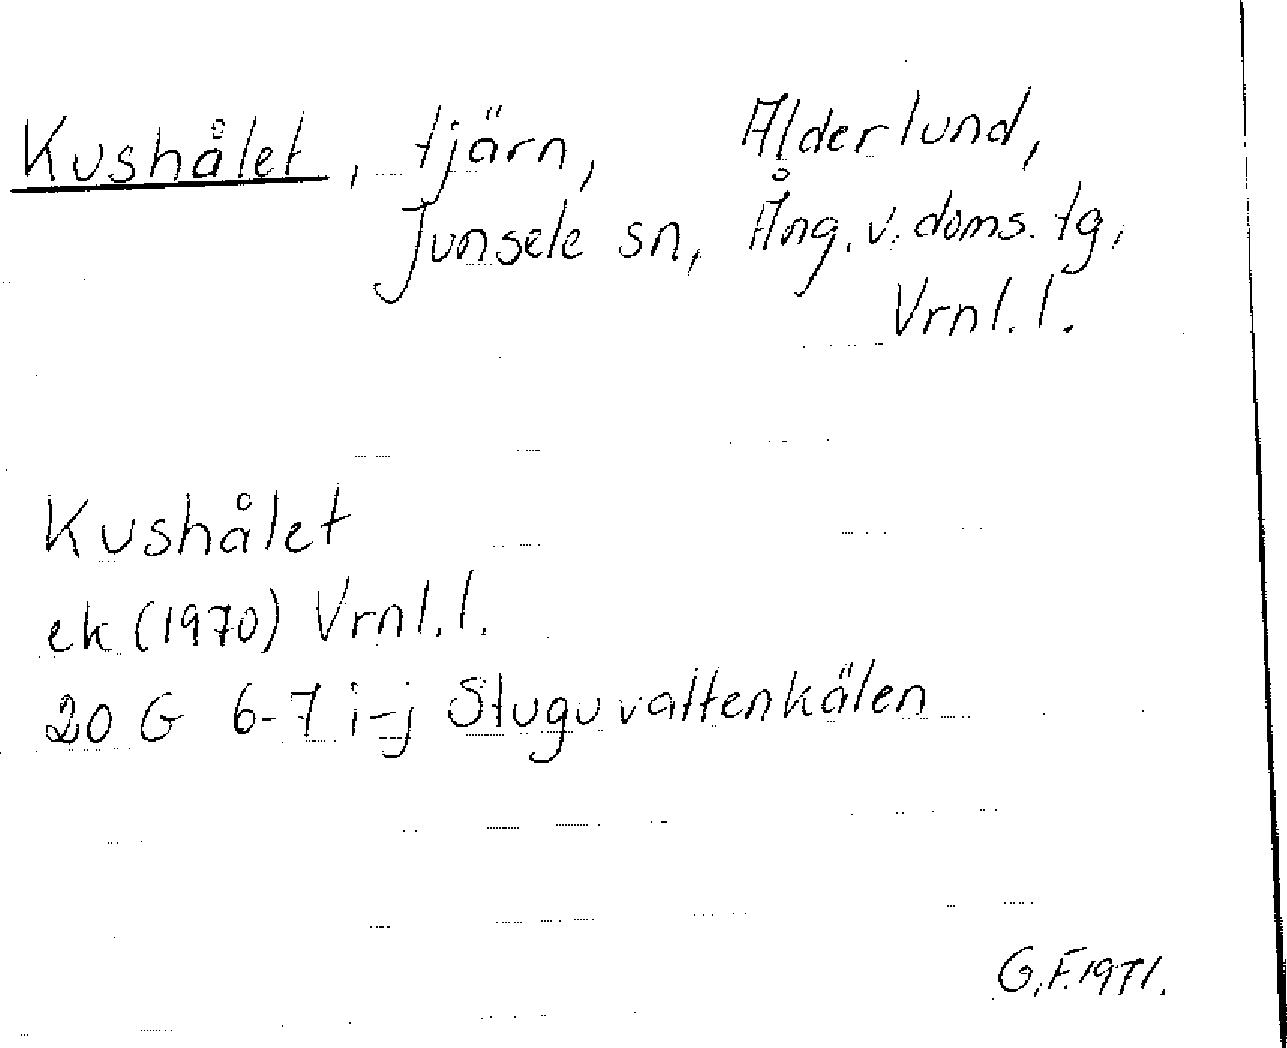 Kushålet, tjärn, Alderlund,
Junsele sn, Ång. v. doms. tg,
Vrnl. l.
Kushålet
ek (1970) Vrnl. l.
20 G 6-7 i-j Stuguvattenkälen
G.F. 1971.